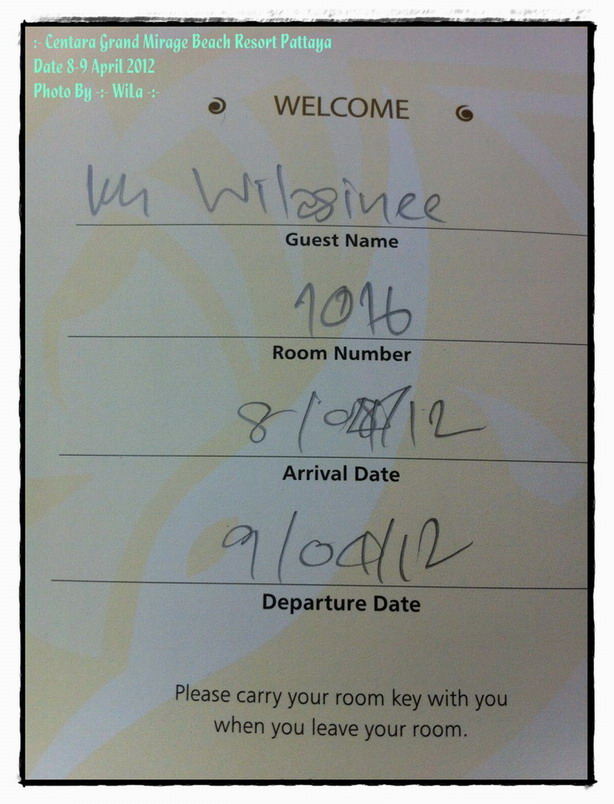 :- Centara Grand Mirage Beach Resort Pattaya
Date 8-9 April 2012
Photo By -:- WiLa -:-
WELCOME
Kh Wilasinee
Guest Name
1016
Room Number
8/04/12
Arrival Date
9/04/12
Departure Date
Please carry your room key with you
when you leave your room.